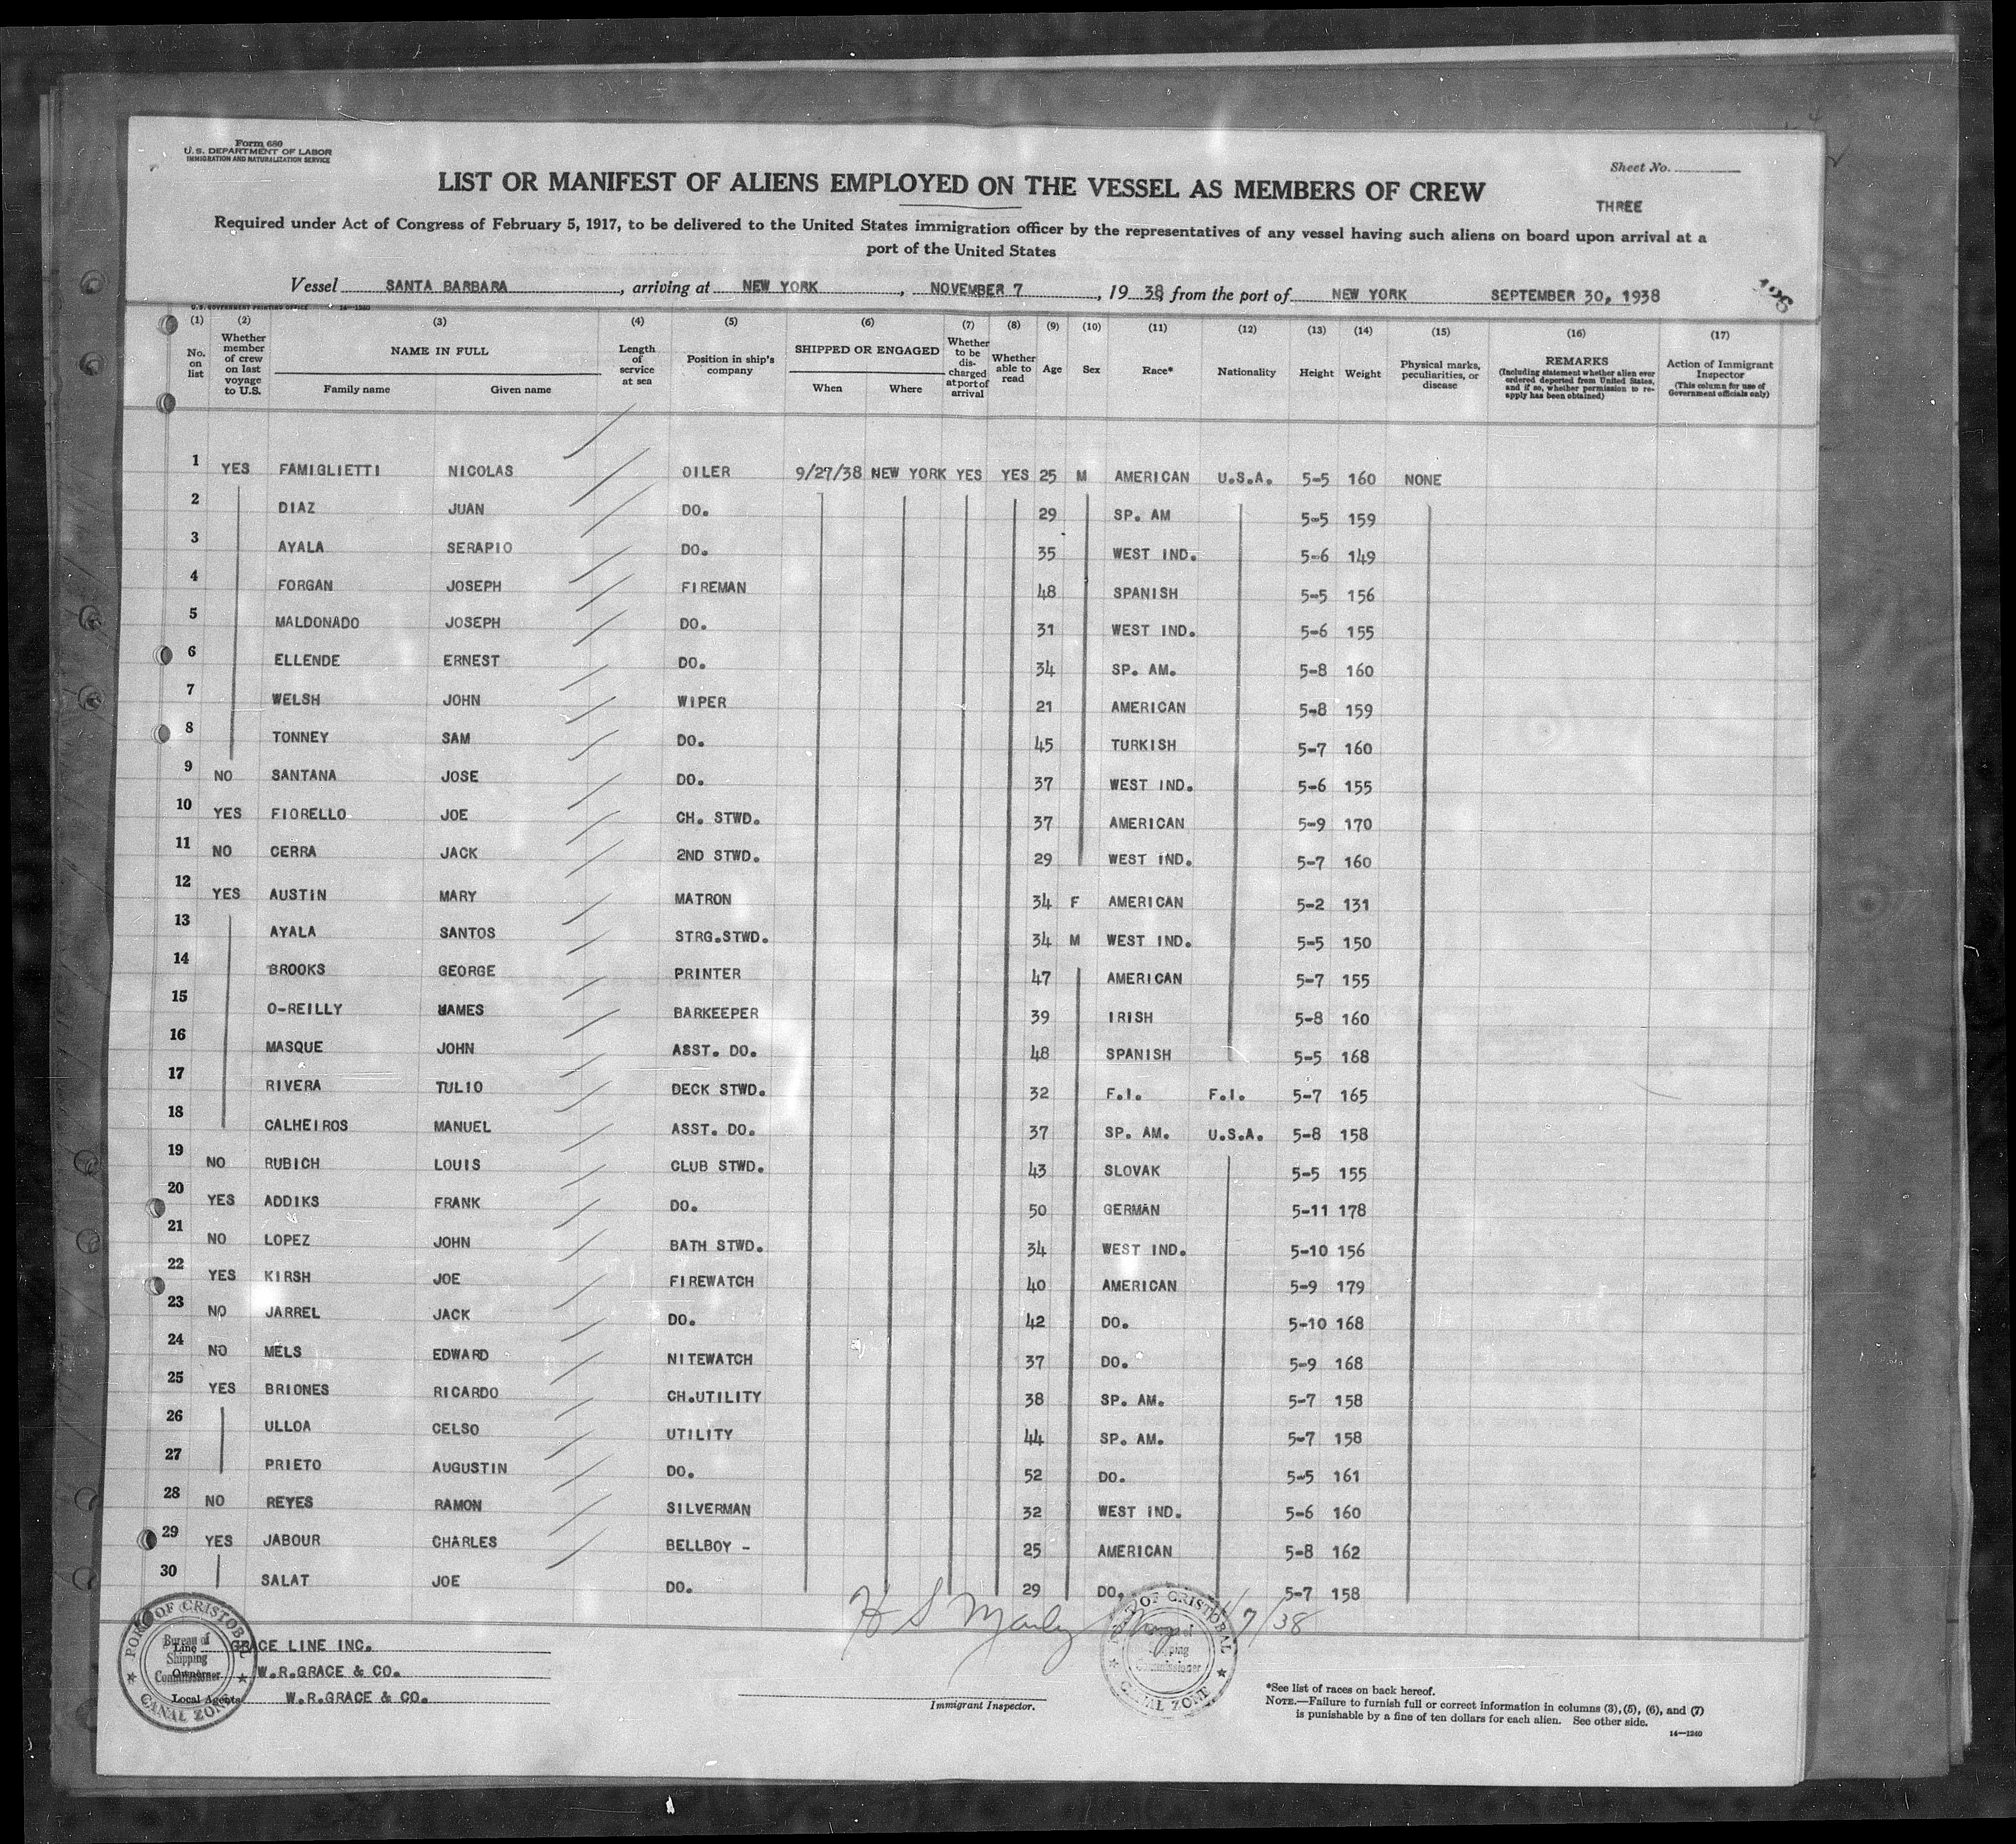 Form 680
U. S. DEPARTMENT OF LABOR
IMMIGRATION AND NATURALIZATION SERVICE
Sheet No.
THREE
LIST OR MANIFEST OF ALIENS EMPLOYED ON THE VESSEL AS MEMBERS OF CREW
Required under Act of Congress of February 5, 1917, to be delivered to the United States immigration officer by the representatives of any vessel having such aliens on board upon arrival at a
port of the United States
Vessel SANTA BARBARA, arriving at NEW YORK, NOVEMBER 7, 1938, from the port of NEW YORK SEPTEMBER 30, 1938
196
U.S. GOVERNMENT PRINTING OFFICE 14-1240
(1) (2) (3) (4) (5) (6) (7) (8) (9) (10) (11) (12) (13) (14) (15) (16) (17)
No. on list
Whether member of crew on last voyage to U.S.
NAME IN FULL
Family name Given name
Length of service at sea
Position in ship's company
SHIPPED OR ENGAGED
When Where
Whether to be discharged at port of arrival
Whether able to read
Age
Sex
Race*
Nationality
Height
Weight
Physical marks, peculiarities, or disease
REMARKS
(Including statement whether alien ever ordered deported from United States, and if so, whether permission to reapply has been obtained)
Action of Immigrant Inspector
(This column for use of Government officials only)
1 YES FAMIGLIETTI NICOLAS OILER 9/27/38 NEW YORK YES YES 25 M AMERICAN U.S.A. 5-5 160 NONE
2 DIAZ JUAN DO. 29 SP. AM 5-5 159
3 AYALA SERAPIO DO. 35 WEST IND. 5-6 149
4 FORGAN JOSEPH FIREMAN 48 SPANISH 5-5 156
5 MALDONADO JOSEPH DO. 31 WEST IND. 5-6 155
6 ELLENDE ERNEST DO. 34 SP. AM. 5-8 160
7 WELSH JOHN WIPER 21 AMERICAN 5-8 159
8 TONNEY SAM DO. 45 TURKISH 5-7 160
9 NO SANTANA JOSE DO. 37 WEST IND. 5-6 155
10 YES FIORELLO JOE CH. STWD. 37 AMERICAN 5-9 170
11 NO CERRA JACK 2ND STWD. 29 WEST IND. 5-7 160
12 YES AUSTIN MARY MATRON 34 F AMERICAN 5-2 131
13 AYALA SANTOS STRG.STWD. 34 M WEST IND. 5-5 150
14 BROOKS GEORGE PRINTER 47 AMERICAN 5-7 155
15 O-REILLY JAMES BARKEEPER 39 IRISH 5-8 160
16 MASQUE JOHN ASST. DO. 48 SPANISH 5-5 168
17 RIVERA TULIO DECK STWD. 32 F.I. F.I. 5-7 165
18 CALHEIROS MANUEL ASST. DO. 37 SP. AM. U.S.A. 5-8 158
19 NO RUBICH LOUIS CLUB STWD. 43 SLOVAK 5-5 155
20 YES ADDIKS FRANK DO. 50 GERMAN 5-11 178
21 NO LOPEZ JOHN BATH STWD. 34 WEST IND. 5-10 156
22 YES KIRSH JOE FIREWATCH 40 AMERICAN 5-9 179
23 NO JARREL JACK DO. 42 DO. 5-10 168
24 NO MELS EDWARD NITEWATCH 37 DO. 5-9 168
25 YES BRIONES RICARDO CH.UTILITY 38 SP. AM. 5-7 158
26 ULLOA CELSO UTILITY 44 SP. AM. 5-7 158
27 PRIETO AUGUSTIN DO. 52 DO. 5-5 161
28 NO REYES RAMON SILVERMAN 32 WEST IND. 5-6 160
29 YES JABOUR CHARLES BELLBOY - 25 AMERICAN 5-8 162
30 SALAT JOE DO. 29 DO. 5-7 158
PORT OF CRISTOBAL
Bureau of Shipping Commissioner
CANAL ZONE
Line GRACE LINE INC.
Owner W.R.GRACE & CO.
Local Agents W.R.GRACE & CO.
H S 7/38
PORT OF CRISTOBAL
Shipping Commissioner
CANAL ZONE
Immigrant Inspector.
*See list of races on back hereof.
NOTE.—Failure to furnish full or correct information in columns (3), (5), (6), and (7)
is punishable by a fine of ten dollars for each alien. See other side.
14-1240